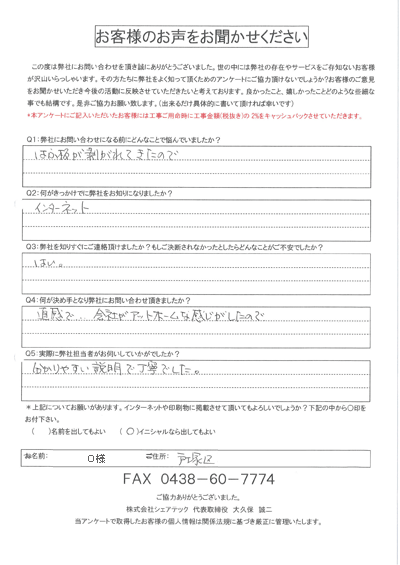 お客様のお声をお聞かせください
この度は弊社にお問い合わせを頂き誠にありがとうございました。世の中には弊社の存在やサービスをご存知ないお客様
が沢山いらっしゃいます。その方たちに弊社をよく知って頂くためのアンケートにご協力頂けないでしょうか?お客様のご意見
をお聞かせいただき今後の活動に反映させていただきたいと考えております。良かったこと、嬉しかったことどのような些細な
事でも結構です。是非ご協力お願い致します。(出来るだけ具体的に書いて頂ければ幸いです)
*本アンケートにご記入いただいたお客様には工事ご用命時に工事金額(税抜き)の2%をキャッシュバックさせていただきます。
Q1:弊社にお問い合わせになる前にどんなことで悩んでいましたか?
はふ板が剥がれてきたので
Q2:何がきっかけでに弊社をお知りになりましたか?
インターネット
Q3:弊社を知りすぐにご連絡頂けましたか?もしご決断されなかったとしたらどんなことがご不安でしたか?
はい。
Q4:何が決め手となり弊社にお問い合わせ頂きましたか?
直感で、会社がアットホームな感じがしたので
Q5:実際に弊社担当者がお伺いしていかがでしたか?
分かりやすい説明で丁寧でした。
*上記についてお願いがあります。インターネットや印刷物に掲載させて頂いてもよろしいでしょうか?下記の中から〇印を
お付下さい。
( )名前を出してもよい (〇)イニシャルなら出してもよい
お名前: O様 ご住所: 戸塚区
FAX 0438-60-7774
ご協力ありがとうございました。
株式会社シェアテック 代表取締役 大久保 誠二
当アンケートで取得したお客様の個人情報は関係法規に基づき厳正に管理いたします。